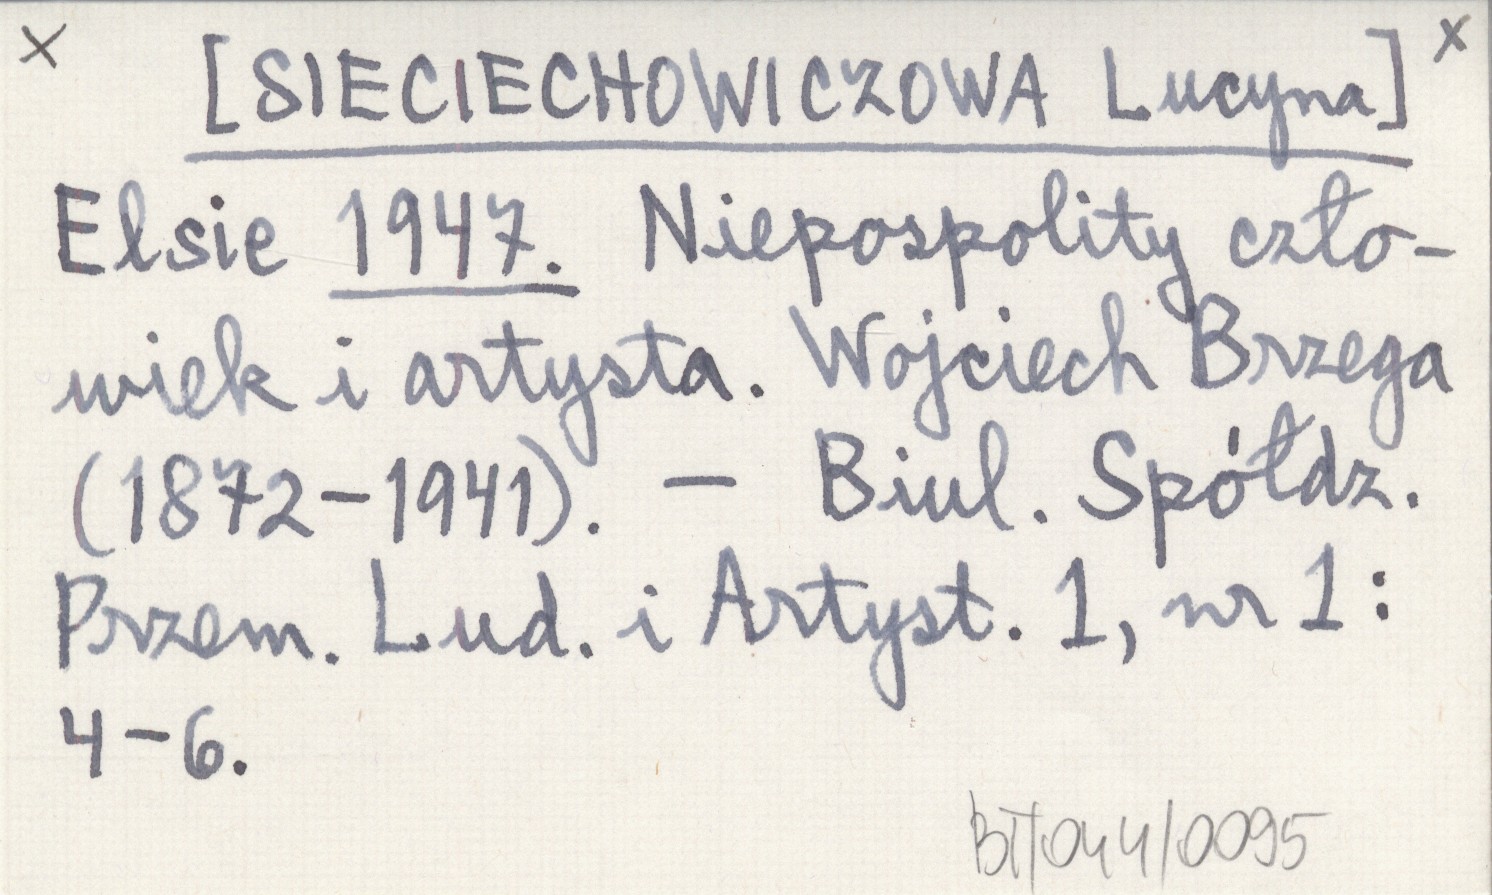 × [SIECIECHOWICZOWA Lucyna] ×
Elsie 1947. Niepospolity czło-
wiek i artysta. Wojciech Brzega
(1872-1941). — Biul. Spółdz.
Przem. Lud. i Artyst. 1, nr 1:
4-6.
BT/044/0095